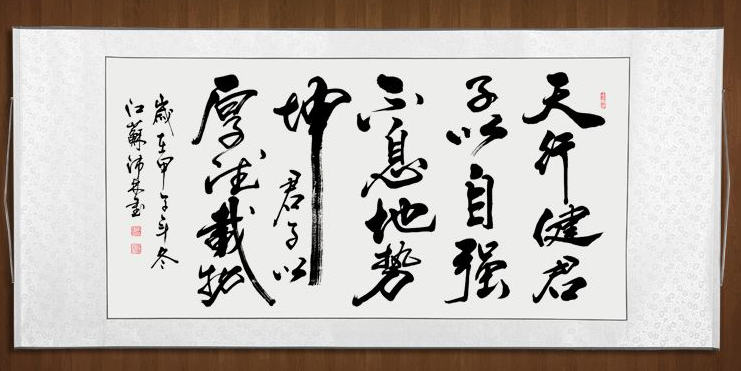 天行健君
子以自强
不息地势
坤君子以
厚德载物
岁在甲午年冬
江苏沛县